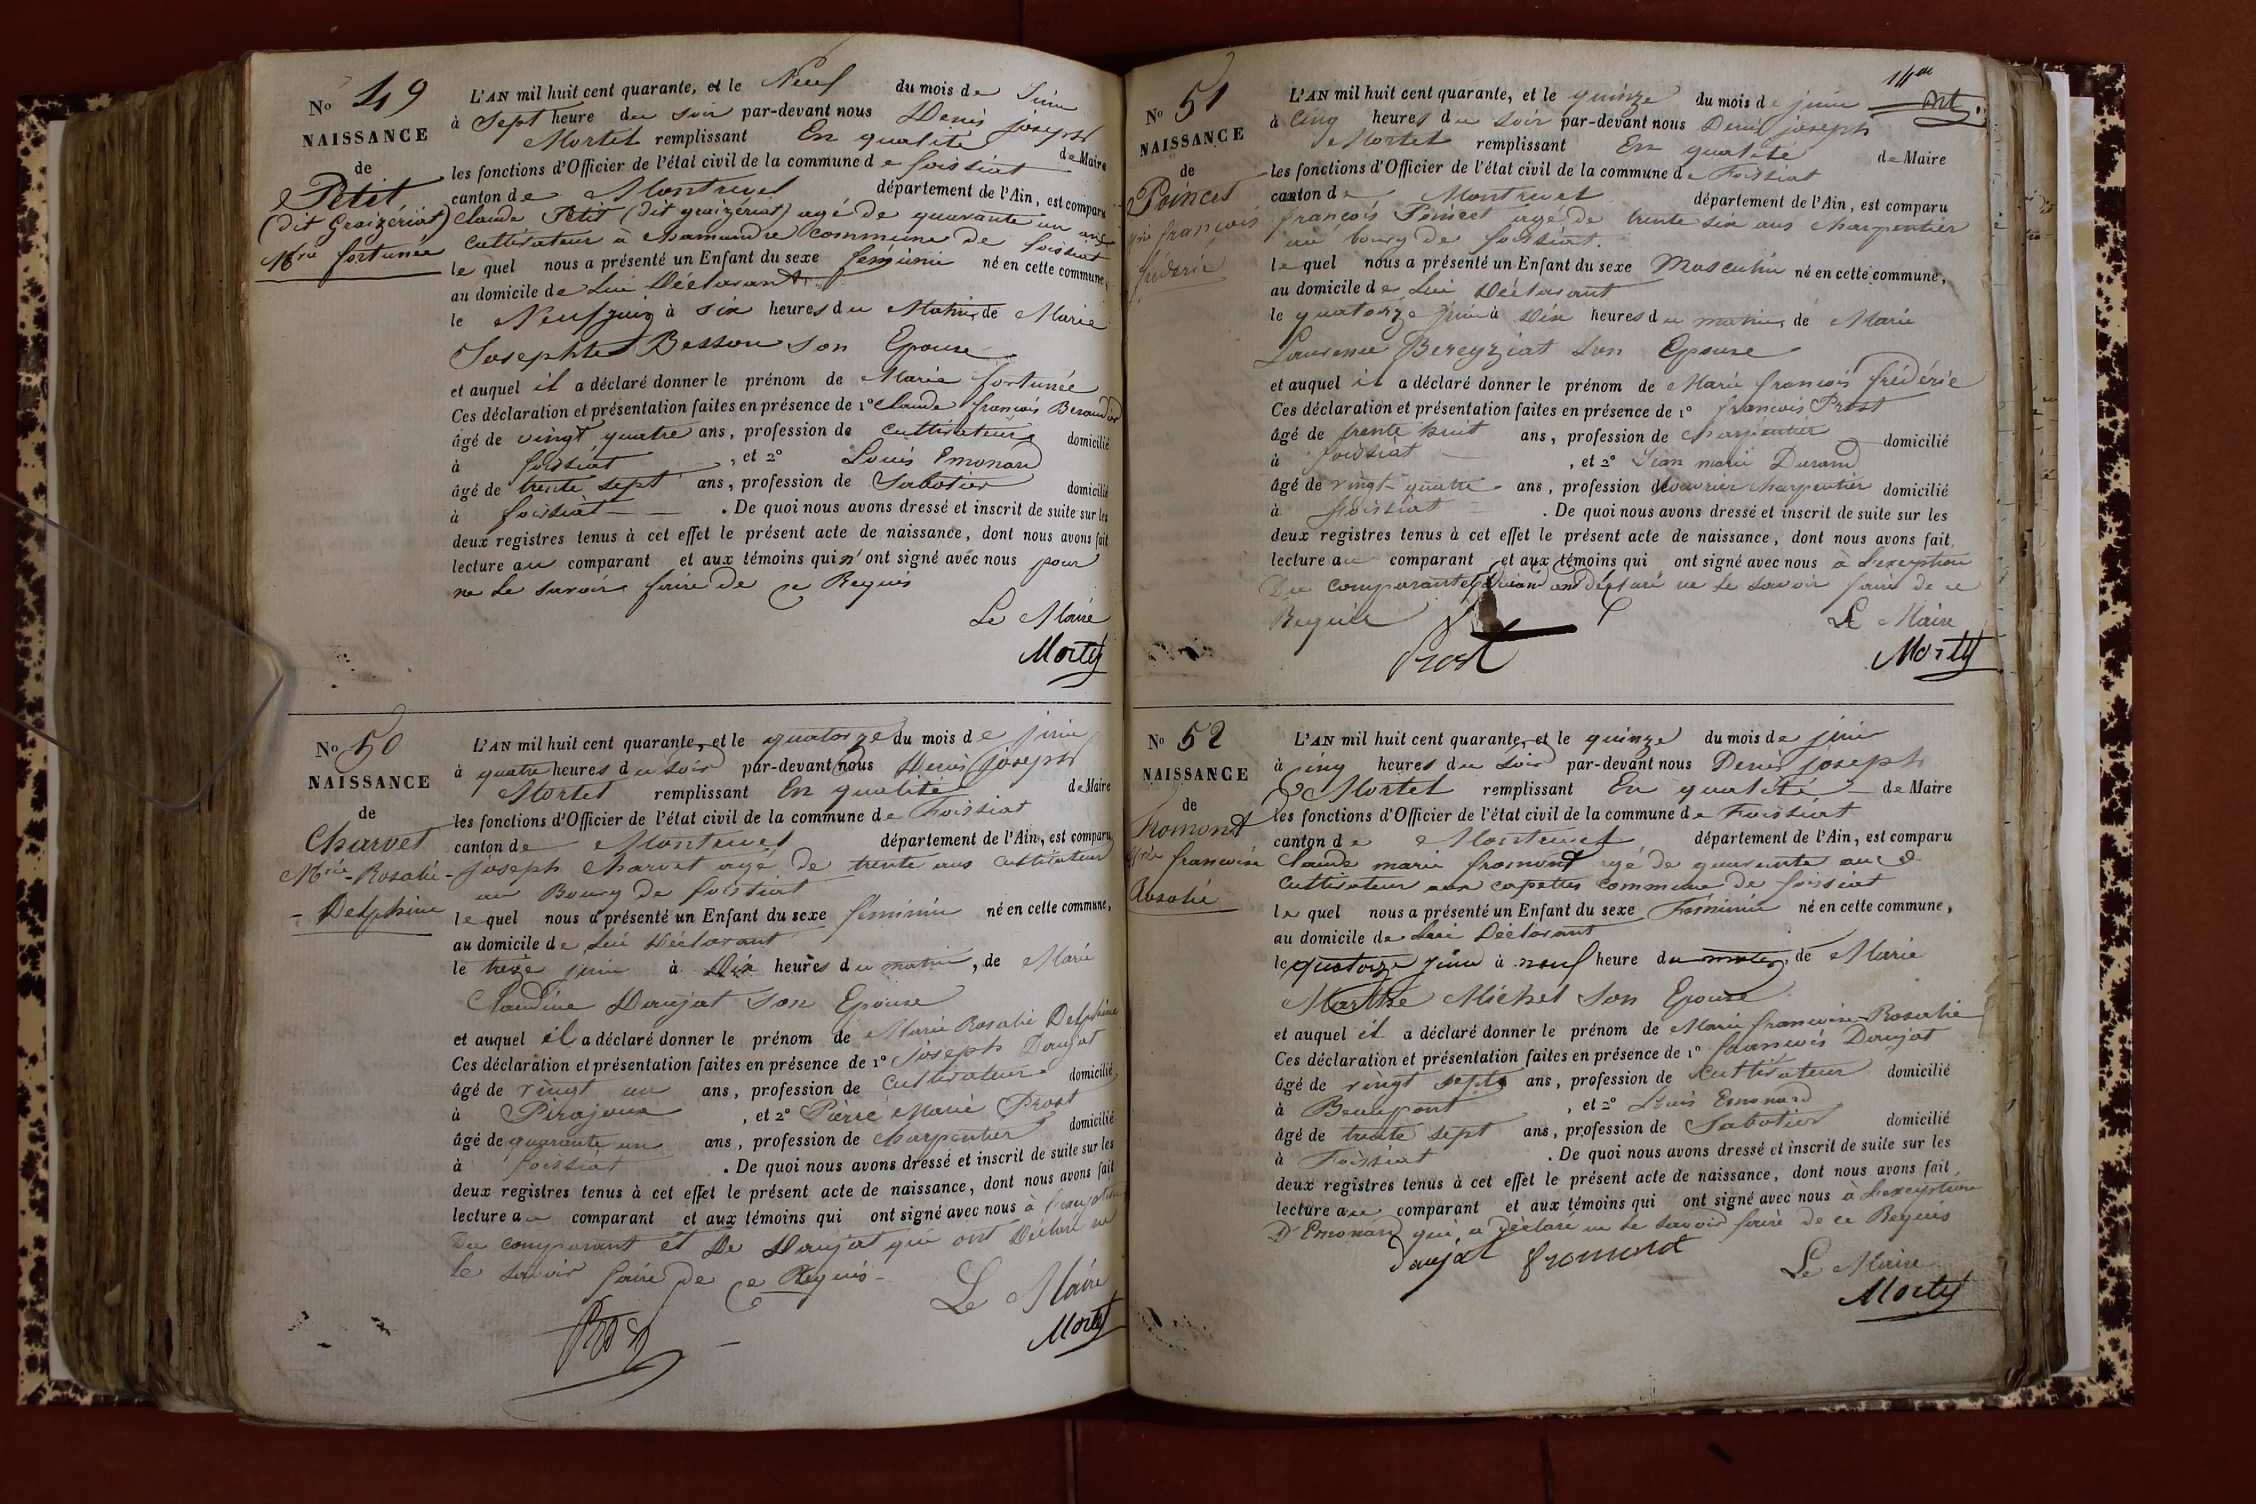 No 49
NAISSANCE
de
Petit
(dit Graizériat)
Mrie fortunée
L'AN mil huit cent quarante, et le Neuf du mois de Juin
à Sept heure du soir par-devant nous Denis joseph
Mortet remplissant En qualité de Maire
les fonctions d'Officier de l'état civil de la commune de foissiat
canton de Montrevel département de l'Ain, est comparu
Claude Petit (dit graizériat) agé de quarante un ans
cultivateur à chamandre commune de foissiat
le quel nous a présenté un Enfant du sexe feminin né en cette commune,
au domicile de Lui Déclarant
le Neuf juin à six heures du Matin, de Marie
Josephte Besson son Epouse
et auquel il a déclaré donner le prénom de Marie fortunée
Ces déclaration et présentation faites en présence de 1o Claude françois
âgé de vingt quatre ans, profession de cultivateur domicilié
à foissiat, et 2o Louis Emonard
âgé de trente sept ans, profession de Sabotier domicilié
à foissiat. De quoi nous avons dressé et inscrit de suite sur les
deux registres tenus à cet effet le présent acte de naissance, dont nous avons fait
lecture au comparant et aux témoins qui n'ont signé avec nous pour
ne le savoir faire de ce Requis
Le Maire
Mortet
No 50
NAISSANCE
de
Charvet
Mrie Rosalie
Delphine
L'AN mil huit cent quarante, et le quatorze du mois de juin
à quatre heures du soir par-devant nous Denis joseph
Mortet remplissant En qualité de Maire
les fonctions d'Officier de l'état civil de la commune de Foissiat
canton de Montrevel département de l'Ain, est comparu
joseph Charvet agé de trente ans cultivateur
au Bourg de foissiat
le quel nous a présenté un Enfant du sexe feminin né en cette commune,
au domicile de Lui Déclarant
le treize juin à Dix heures du matin, de Marie
Claudine Daujat son Epouse
et auquel il a déclaré donner le prénom de Marie Rosalie Delphine
Ces déclaration et présentation faites en présence de 1o joseph Daujat
âgé de vingt un ans, profession de cultivateur domicilié
à Pirajoux, et 2o Pierre Marie Prost
âgé de quarante un ans, profession de charpentier domicilié
à foissiat. De quoi nous avons dressé et inscrit de suite sur les
deux registres tenus à cet effet le présent acte de naissance, dont nous avons fait
lecture au comparant et aux témoins qui ont signé avec nous à l'exception
Du comparant et De Daujat qui ont Déclaré ne
le savoir faire de ce Requis
Le Maire
Prost
Mortet
No 51
NAISSANCE
de
Poincet
Mrie françois
fréderic
L'AN mil huit cent quarante, et le quinze du mois de juin
à Cinq heures du soir par-devant nous Denis joseph
Mortet remplissant En qualité de Maire
les fonctions d'Officier de l'état civil de la commune de Foissiat
canton de Montrevel département de l'Ain, est comparu
françois Poincet agé de trente six ans charpentier
au bourg de foissiat.
le quel nous a présenté un Enfant du sexe Masculin né en cette commune,
au domicile de Lui Déclarant
le quatorze juin à Dix heures du matin, de Marie
Laurence Bereyziat son Epouse
et auquel il a déclaré donner le prénom de Marie françois frédéric
Ces déclaration et présentation faites en présence de 1o francois Prost
âgé de trente huit ans, profession de charpentier domicilié
à foissiat, et 2o Jean marie Durand
âgé de vingt quatre ans, profession d'ouvrier charpentier domicilié
à foissiat. De quoi nous avons dressé et inscrit de suite sur les
deux registres tenus à cet effet le présent acte de naissance, dont nous avons fait
lecture au comparant et aux témoins qui ont signé avec nous à l'exception
Du comparant et Durand ont déclaré ne le savoir faire de ce
Requis
Le Maire
Prost
Mortet
No 52
NAISSANCE
de
Fromond
Mrie francoise
Rosalie
L'AN mil huit cent quarante, et le quinze du mois de juin
à cinq heures du soir par-devant nous Denis joseph
Mortet remplissant En qualité de Maire
les fonctions d'Officier de l'état civil de la commune de Foissiat
canton de Montrevel département de l'Ain, est comparu
Claude marie fromond agé de quarante ans
cultivateur aux capettes commune de foissiat
le quel nous a présenté un Enfant du sexe Féminin né en cette commune,
au domicile de Lui Déclarant
le quatorze juin à neuf heure du matin, de Marie
Marthe Michel son Epouse
et auquel il a déclaré donner le prénom de Marie francoise Rosalie
Ces déclaration et présentation faites en présence de 1o francois Daujat
âgé de vingt sept ans, profession de cultivateur domicilié
à Beaupont, et 2o Louis Emonard
âgé de trente sept ans, profession de Sabotier domicilié
à Foissiat. De quoi nous avons dressé et inscrit de suite sur les
deux registres tenus à cet effet le présent acte de naissance, dont nous avons fait
lecture au comparant et aux témoins qui ont signé avec nous à l'exception
D'Emonard qui a déclaré ne le savoir faire de ce Requis
Daujat fromond
Le Maire
Mortet